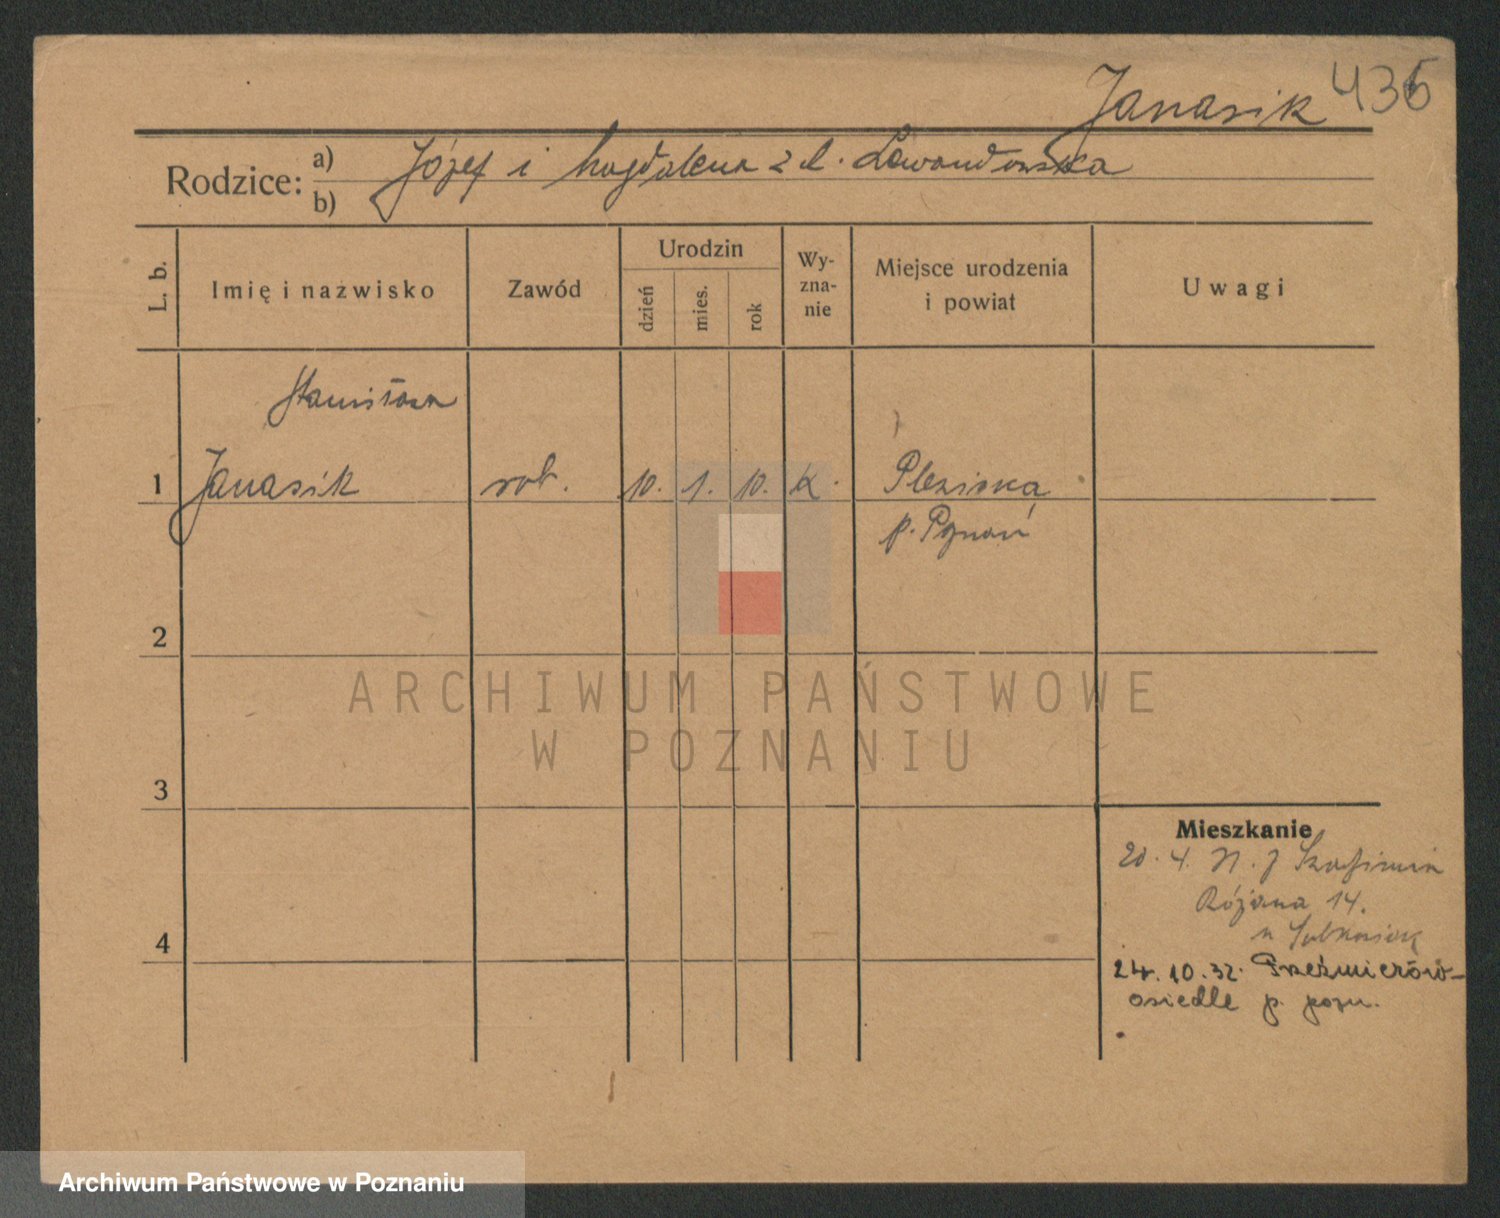 Janasik 435
Rodzice: a) Józef i Magdalena z d. Lewandowska
b)
L. b.
Imię i nazwisko
Zawód
Urodzin
dzień
mies.
rok
Wy-
zna-
nie
Miejsce urodzenia
i powiat
Uwagi
Stanisława
1 Janasik rob. 10. 1. 10. k.
p. Poznań
2
3
4
ARCHIWUM PAŃSTWOWE
W POZNANIU
Mieszkanie
20. 4.
Różana 14.
24.10.32. Przeźmierowo-
osiedle p. pozn.
Archiwum Państwowe w Poznaniu